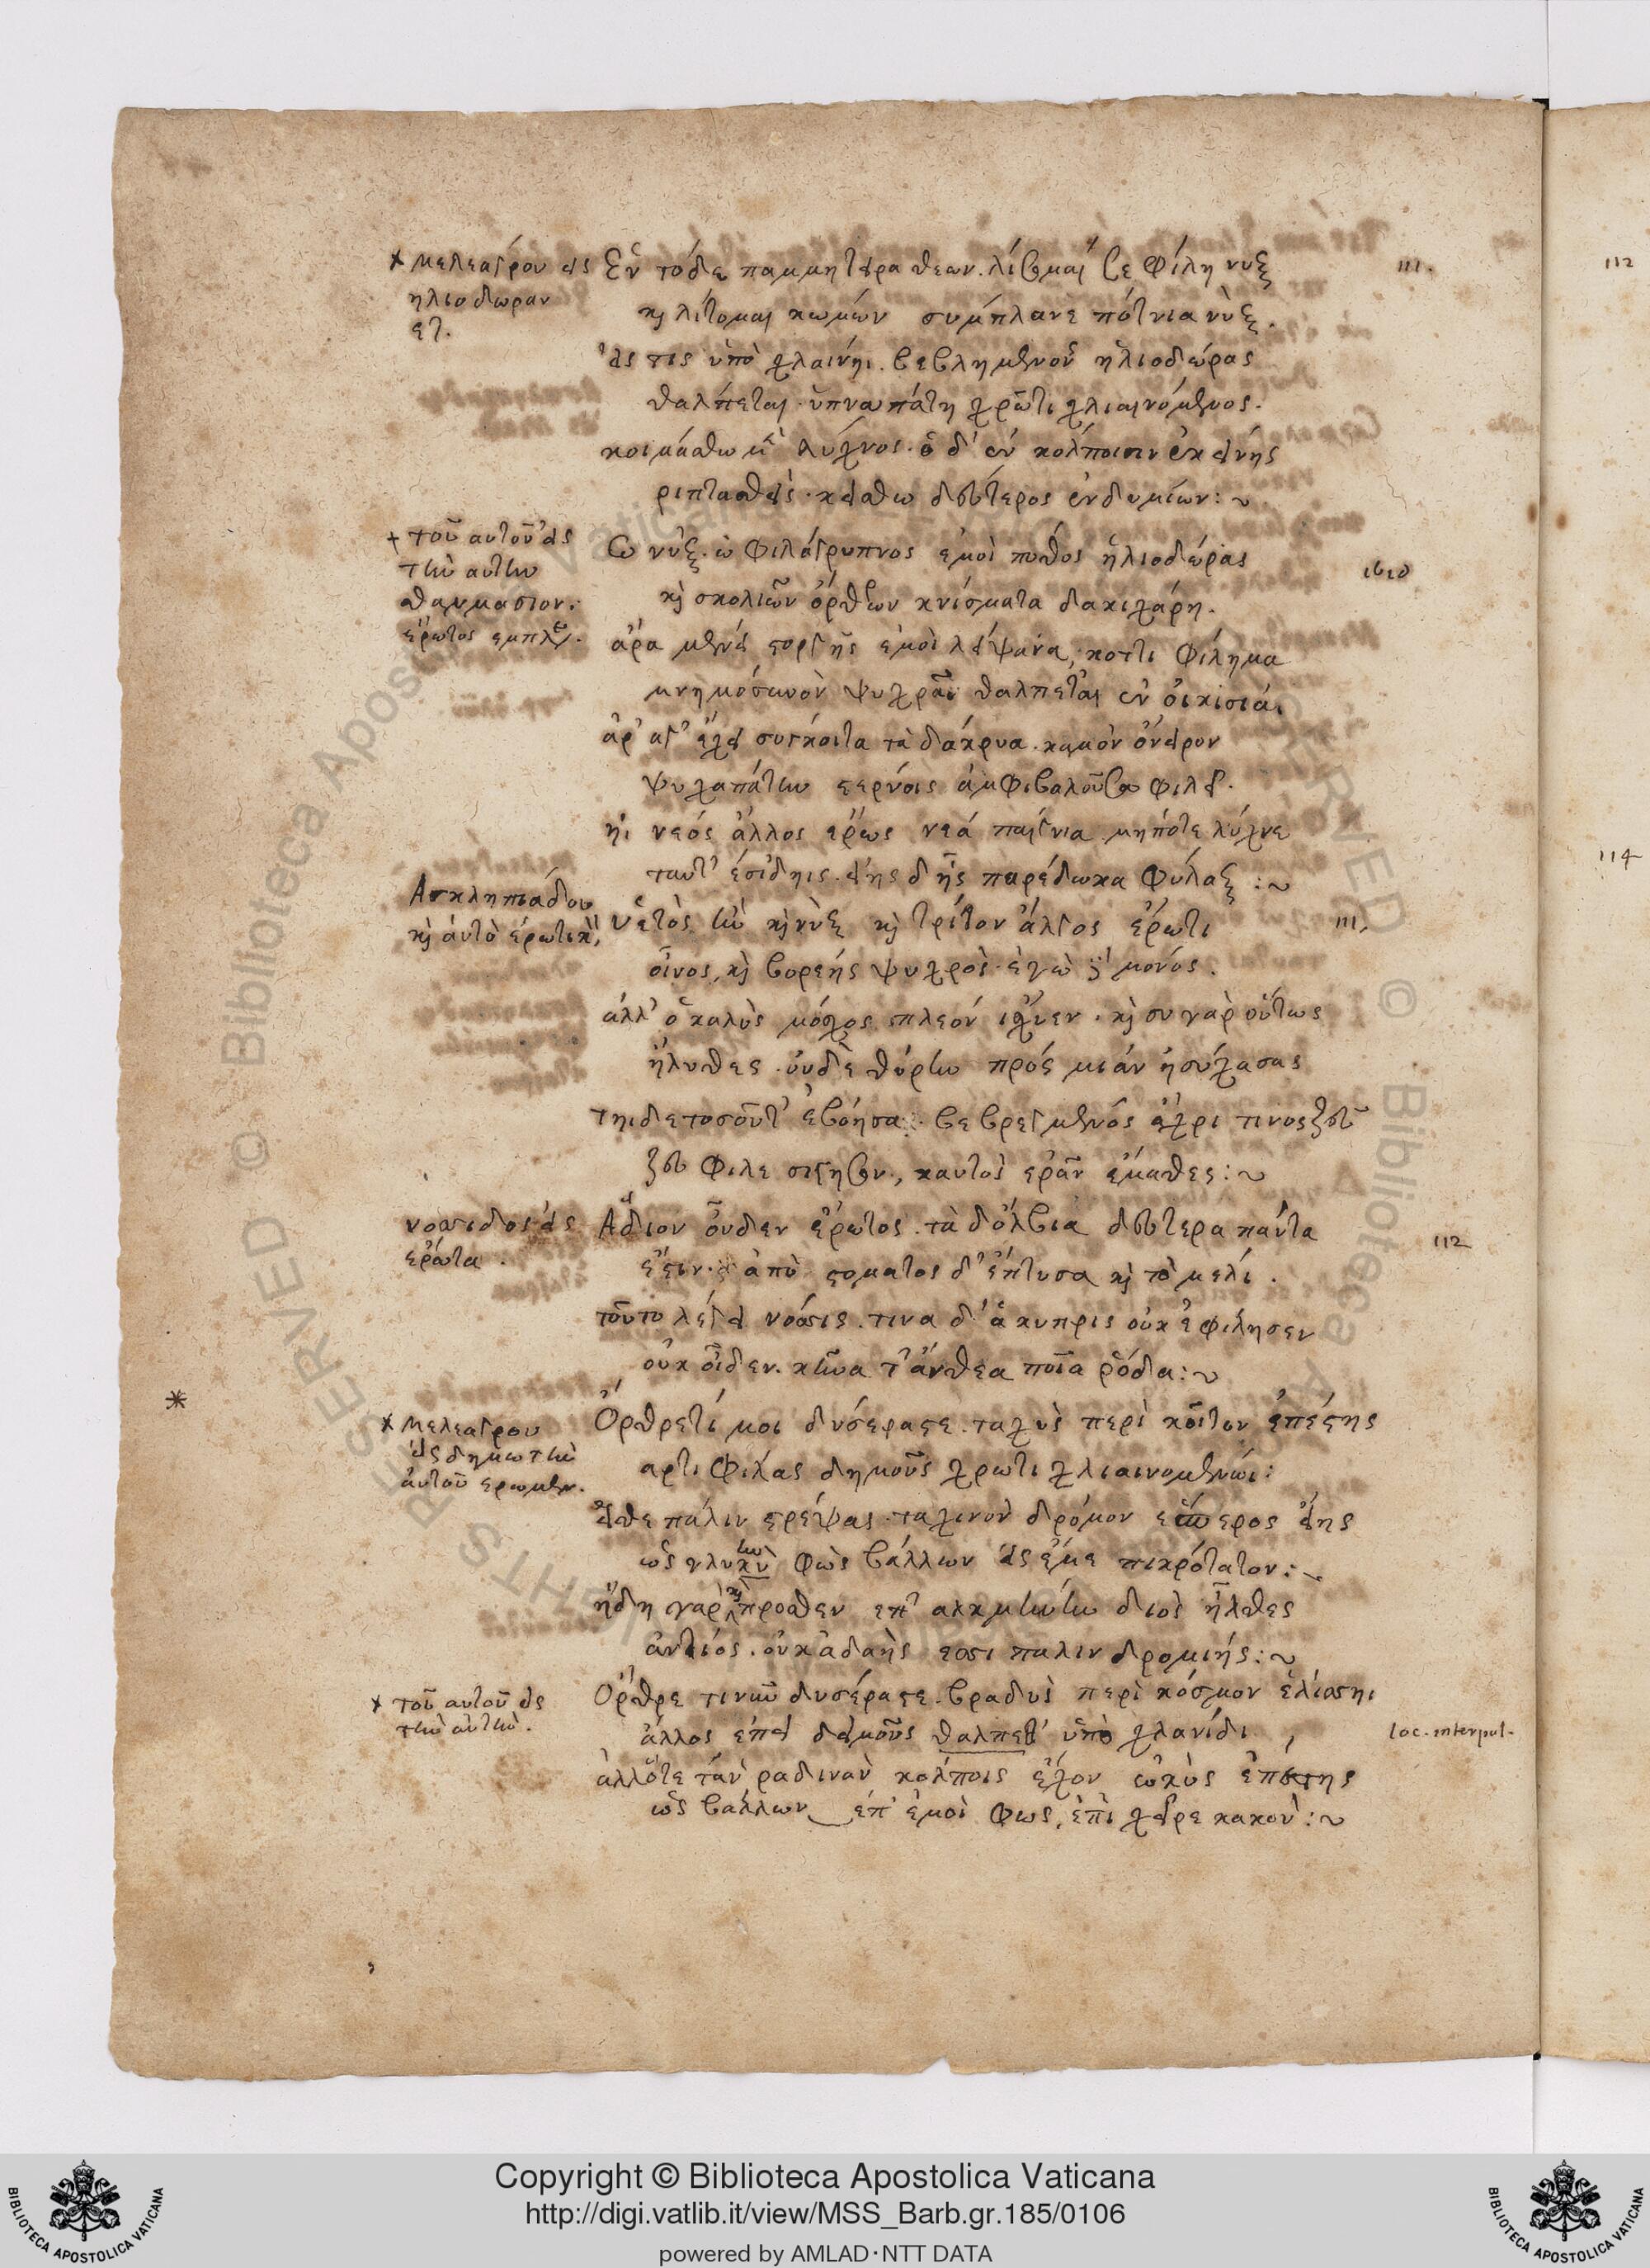 ✗ μελεαγρου εις
ηλιοδωραν
Εν τόδε παμμητειρα θεων. λίσομαι σε φίλη νυξ 111.
κ̀ λίτομαι κωμών σύμπλανε πότνια νὺξ.
εἰς τις ὑπὸ χλαίνηι. βεβλημενον ἡλιοδώρας
θαλπεται. ὑπναπάτη χρῶτι χλιαινόμενος.
κοιμάσθω μὲ λύχνος. ὁ δ' ἐν κολποισιν ἐκεινής
ριπτασθεὶς. κείσθω δευτερος ἐνδυμίων:~
+ τοῦ αυτοῦ εἰς
την αυτην
θαυμασιον.
ἐρωτος εμπλε.
Ω νύξ. ὠ φιλάγρυπνος εμοὶ ποθος ἡλιοδώρας ibid
κ̀ σκολιῶν ὀρθων κνίσματα δακιχάρη.
ἀρα μενει στοργῆς ἐμοὶ λείψανα, κοττι φίλημα
μνημόσυνον ψυχρᾶι θαλπεται ἐν οἰκισιάι
ἀρ' αγ' ἔχει συγκοιτα τὰ δάκρυα. καμὸν όνειρον
ψυχαπάτην στερνοις ἀμφιβαλοῦσα φιλεῖ.
ἠι νεός ἀλλος ερως νεά παιγνια μηποτε λύχνε
ταυτ' ἐσίδηις. εἰης δ ῆς παρέδωκα φύλαξ:~
Ασκληπιάδου
κ̀ ἀυτὸ ἐρωτικ
ὑετὸς ἦν κ̀ νὺξ κ̀ τρίτον άλγος ἐρωτι 111,
οἶνος, κ̀ βορεής ψυχρὸς. ἐγὼ δ' μονος.
ἀλλ' ὁ καλὸς μόσχος πλεόν ισχυεν. κ̀ συ γαρ οὕτως
ἤλυθες. οὐδὲ θύρην πρός μιάν ἡσυχασας
τηιδετοσοῦτ' ἐβόησα. βεβρεγμενος ἀχρι τινος ζευ
ζευ φιλε σιγησον., καυτος ερᾶν ἐμαθες:~
νοσσιδος εἰς
ερωτα.
Αδιον οὐδεν ἐρωτος. τὰ δ' όλβια δευτερα πάντα 112
ἐστιν. ἀπὸ στοματος δ' ἐπτυσα κ̀ τὸ μελι.
τοῦτο λέγει νοσσις. τινα δ' ἁ κυπρις οὐκ ἐφιλησεν
οὐκ οἶδεν. κηνα τ' άνθεα ποῖα ῥόδα:~
*
✗ Μελεαγρου
εἰς δημω την
ἀυτοῦ ερωμεν.
Ὀρθρε τί μοι δυσέραστε. ταχὺς περὶ κοῖτον ἐπέστης
αρτι φίλας δημοῦς χρωτι χλιαινομενωι:
εἰθε πάλιν στρέψας. ταχινον δρόμον ἑσπερος εἰης
ὡς γλυκὺν φῶς βάλλων εἰς ἐμε πικρότατον:~
ἤδη γαρ κ̀ προσθεν επ' αλκμηνην διος ἦλθες
ἀντιός. οὐκ ἀδαὴς εσσι παλιν δρομιής:~
✗ τοῦ αυτοῦ εἰς
την αὐτην.
Ορθρε τι νῦν δυσέραστε. βραδυς περὶ κόσμον ἐλίσσηι
ἀλλος ἐπεὶ δημοῦς θαλπεθ' ὑπὸ χλανίδι, loc. interpul.
ἀλλ ὅτε τάν ραδιναν κολποις ἐχον ὠκὺς ἐπέστης
ὡς βαλλων ἐπ' ἐμοὶ φως, ἐπὶ χαῖρε κακον:~
112
114
Copyright © Biblioteca Apostolica Vaticana
http://digi.vatlib.it/view/MSS_Barb.gr.185/0106
powered by AMLAD·NTT DATA
BIBLIOTECA APOSTOLICA VATICANA
BIBLIOTECA APOSTOLICA VATICANA